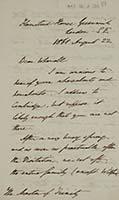 Flamsteed House, Greenwich
London S.E.
1861 August 22
Dear Whewell
I am anxious to
hear of your
I address to
Cambridge, but suppose it
likely enough that you are not
there.
After a very busy
as soon as practicable after
the Visitation, we set off
the entire family (except Wilfrid
The Master of Trinity